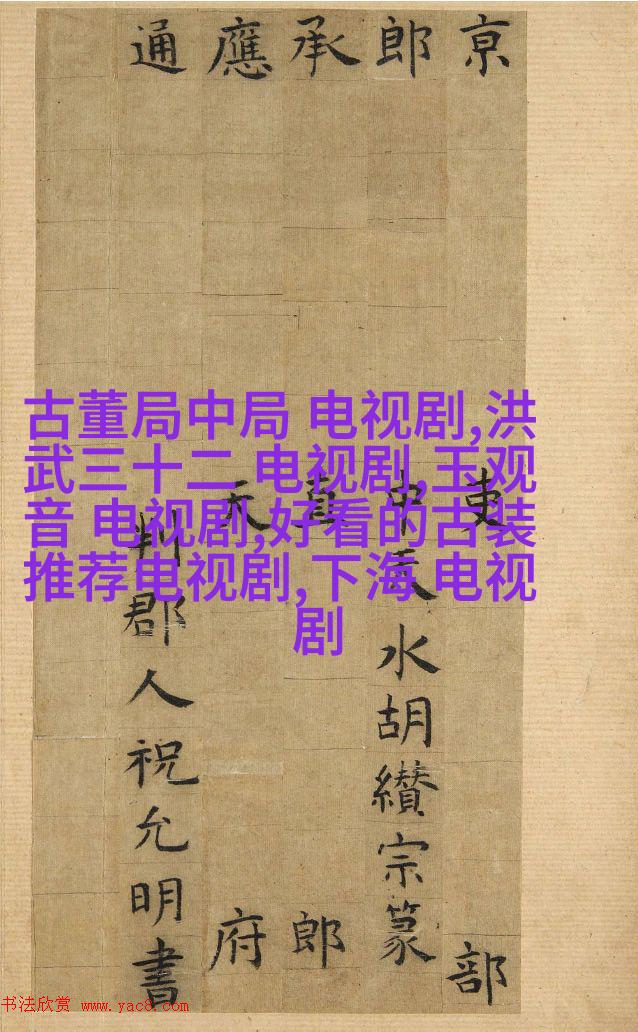 京吏部
郎中天水胡纘宗篆
承直郎
應天府
通判郡人祝允明書
古董局中局 电视剧,洪
武三十二 电视剧,玉观
音 电视剧,好看的古装
推荐电视剧,下海 电视
剧
书法欣赏 www.yac8.com